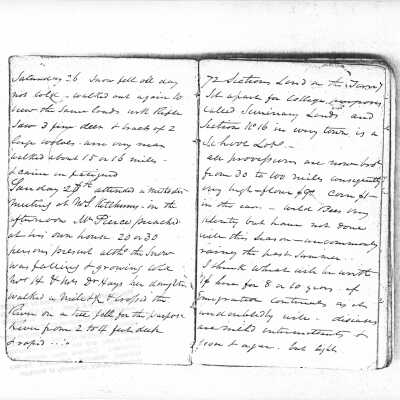 Saturday 26 Snow fell all day
not cold - walked out again to
view the same lands with Rifle
Saw 3 fine deer & track of 2
large wolves - am very
walked about 15 or 16 miles -
& came in fatigued
Sunday 27th attended a methodist
meeting at Mr S Kitchens - in the
afternoon Mr Pierce preached
at his own house 20 or 30
persons present altho the Snow
was falling & growing cold
Mr H & Mrs Dr Hays her daughter
walked a mile & & crossed the
River on a tree fell for the purpose
River from 2 to 4 feet deep
& rapid
72 Sections Land in the Terry
Set apart for College purposes
called Seminary Lands and
Section No 16 in every town is a
School Lot -
all provisions are now bro't
from 30 to 100 miles consequently
very high - flour $9 corn $1 -
in the ear - wild Bees very
plenty but have not done
well this Season - uncommonly
rainy the past Summer
I think what will be worth
if here for 8 or 10 years if
emigration continues as
undoubtedly will - diseases
are mild intermittents &
fever & ague. but light